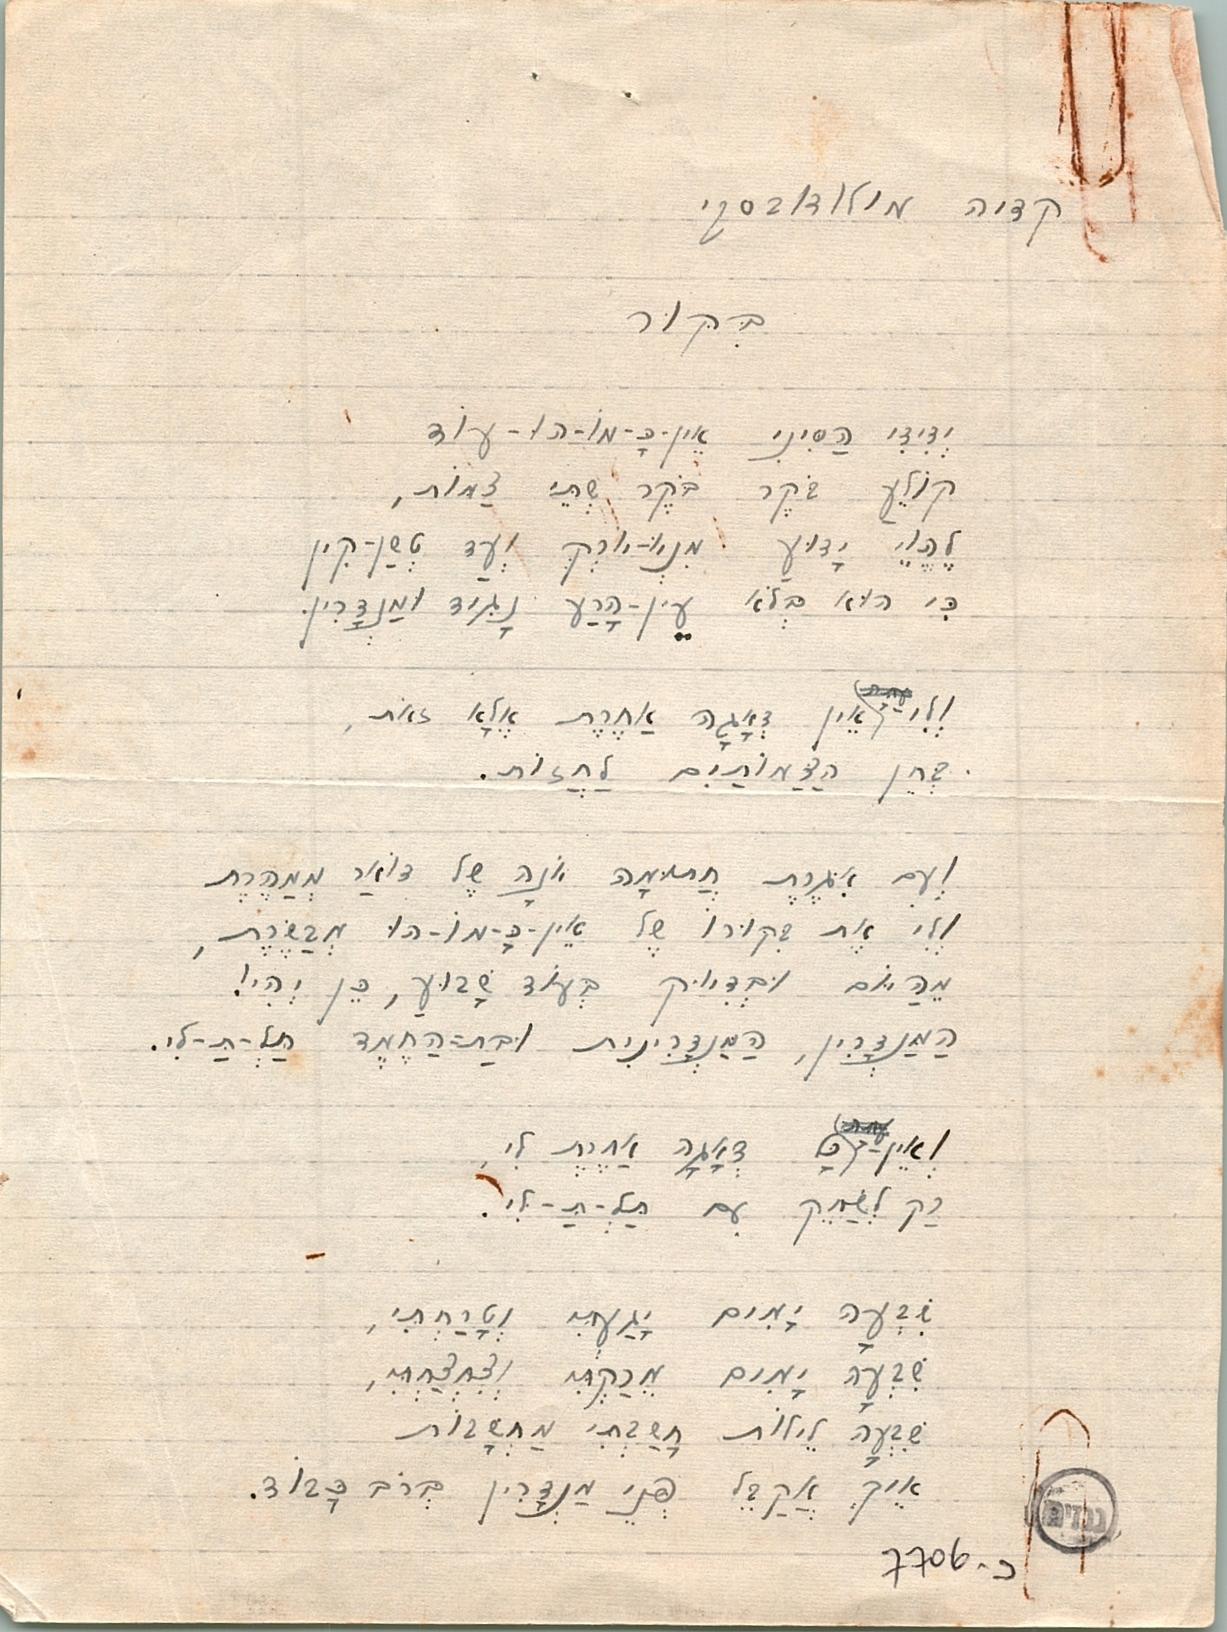 קדיה מולודובסקי
בִּקּוּר
יְדִידִי הַסִּינִי אֵין-כָּ-מוֹ-הוּ-עוֹד
קוֹלֵעַ בֹּקֶר בֹּקֶר שְׁתֵּי צַמּוֹת,
לֶהֱוֵי יָדוּעַ מִנְיוּ-יוֹרְק וְעַד טְשַׁן-קִין
כִּי הוּא בְּלֹא עֵין-הָרַע נָגִיד וּמַנְדָּרִין.
וְלִי אֵין דְּאָגָה אַחֶרֶת אֶלָּא זֹאת,
בְּחֵן הַצַּמּוֹתַיִם לַחֲזוֹת.
וְעִם אִגֶּרֶת חֲתוּמָה אֹנָהּ שֶׁל דּוֹאַר מְמַהֶרֶת
וְלִי אֶת בִּקּוּרוֹ שֶׁל אֵין-כָּ-מוֹ-הוּ מְבַשֶּׂרֶת,
מֵהַיּוֹם וּבְדִיּוּק בְּעוֹד שָׁבוּעַ, כֵּן יְהִי!
הַמַּנְדָּרִין, הַמַּנְדָּרִינִית וּבַת-הַחֶמֶד תַּלְ-תַּ-לִי.
וְאֵין דְּאָגָה אַחֶרֶת לִי,
רַק לְשַׂחֵק עִם תַּלְ-תַּ-לִּי.
שִׁבְעָה יָמִים יָגַעְתִּי וְטָרַחְתִּי,
שִׁבְעָה יָמִים מֵרַקְתִּי וְצִחְצַחְתִּי,
שִׁבְעָה לֵילוֹת חָשַׁבְתִּי מַחְשָׁבוֹת
אֵיךְ אֲקַבֵּל פְּנֵי מַנְדָּרִין בְּרֹב כָּבוֹד.
גנזים
כ-7706